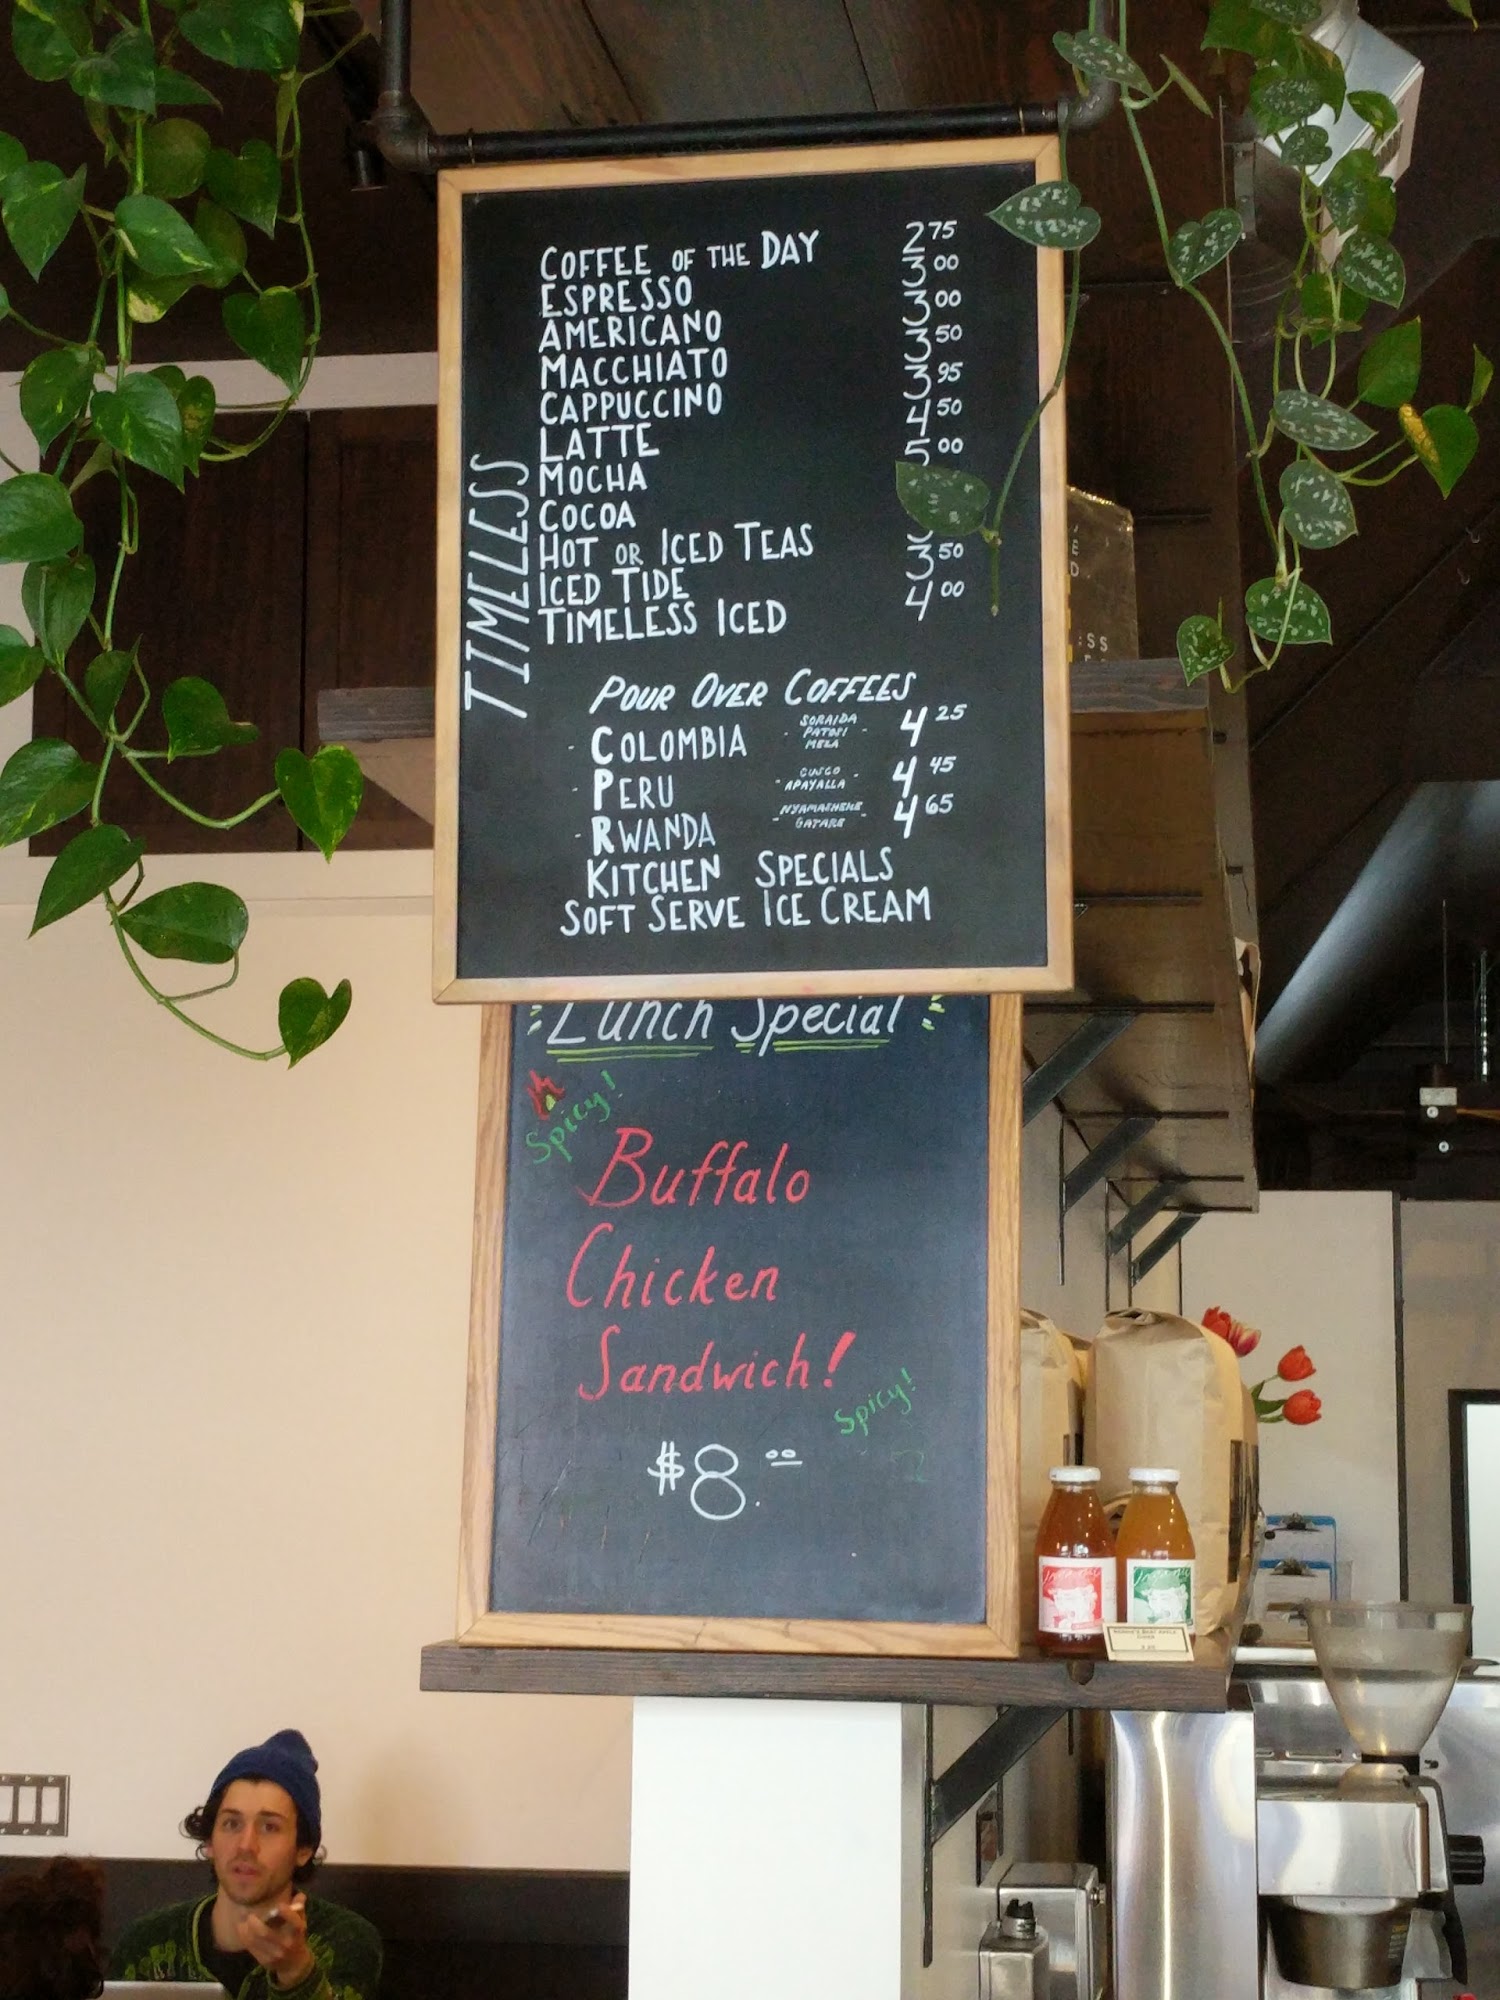 TIMELESS
COFFEE OF THE DAY 2 75
ESPRESSO 3 00
AMERICANO 3 00
MACCHIATO 3 50
CAPPUCCINO 3 95
LATTE 4 50
MOCHA 5 00
COCOA
HOT OR ICED TEAS
ICED TIDE 3 50
TIMELESS ICED 4 00
POUR OVER COFFEES
- COLOMBIA - SORAIDA PATOSI - 4 25
- PERU - CUSCO APAYALLA - 4 45
- RWANDA - NYAMASHEKE GATARE - 4 65
KITCHEN SPECIALS
SOFT SERVE ICE CREAM
Lunch Special
Spicy!
Buffalo
Chicken
Sandwich!
Spicy!
$8.00